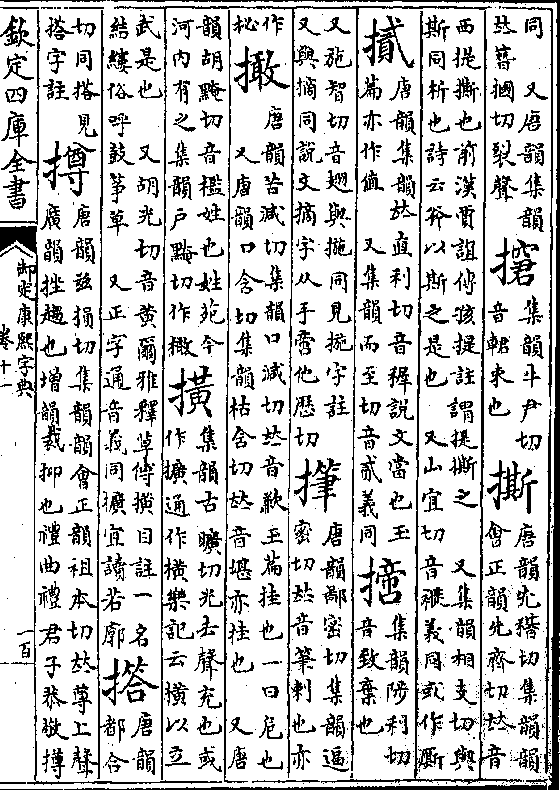 同　又唐韻集韻
𠀤嘼摑切裂聲
集韻斗尹切
音輑束也
撕
唐韻先稽切集韻韻
會正韻先齊切𠀤音
西提撕也前漢賈誼傅孩提註謂提撕之　又集韻相支切與
斯同析也詩云斧以斯之是也　又山宜切音釃義同或作廝
唐韻集韻𠀤直利切音稺說文當也玉
篇亦作値　又集韻而至切音貳義同
集韻陟利切
音致棄也
又施智切音翅與同見字註
又與摘同說文摘字从手啻他歷切
唐韻鄙密切集韻逼
密切𠀤音筆刺也亦
作
柲
撖
唐韻苦減切集韻口減切𠀤音歉玉篇挂也一曰危也
又唐韻口含切集韻枯含切𠀤音堪亦挂也　又唐
韻胡黤切音檻姓也姓苑今
河内有之集韻戸黤切作橄
撗
集韻古曠切光去聲充也或
作擴通作橫樂記云橫以立
武是也　又胡光切音黃爾雅釋草傅撗目註一名
結縷俗呼鼓筝草　又正字通音義同擴宜讀若郭
撘
唐韻
都合
切同搭見
搭字註
撙
唐韻兹損切集韻韻會正韻祖本切𠀤尊上聲
廣韻挫趨也增韻裁抑也禮曲禮君子恭敬撙
欽定四庫全書
御定康熙字典
卷十一
一百